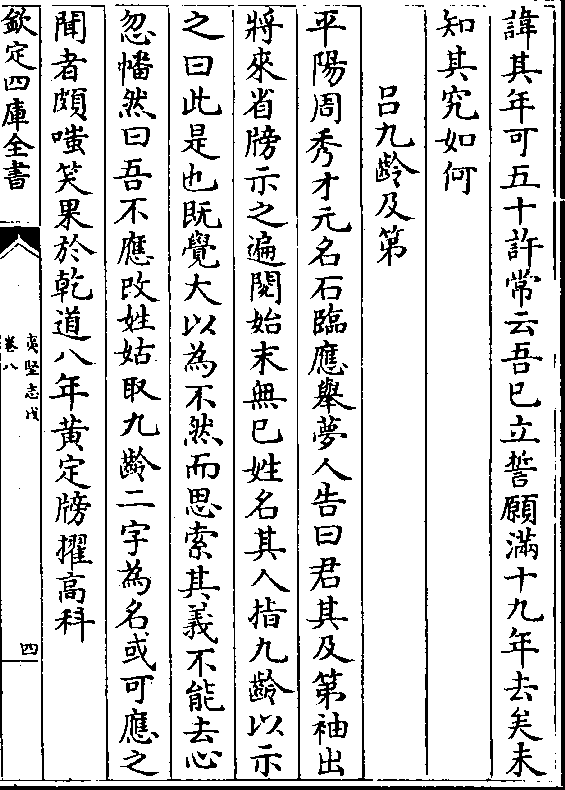 諱其年可五十許常云吾已立誓願滿十九年去矣未
知其究如何
呂九齡及第
平陽周秀才元名石臨應舉夢人告曰君其及第袖出
將來省牓示之遍閱始末無已姓名其人指九齡以示
之曰此是也既覺大以為不然而思索其義不能去心
忽幡然曰吾不應改姓姑取九齡二字為名或可應之
聞者頗嗤笑果於乾道八年黃定牓擢高科
欽定四庫全書
夷堅志戊
卷八
四